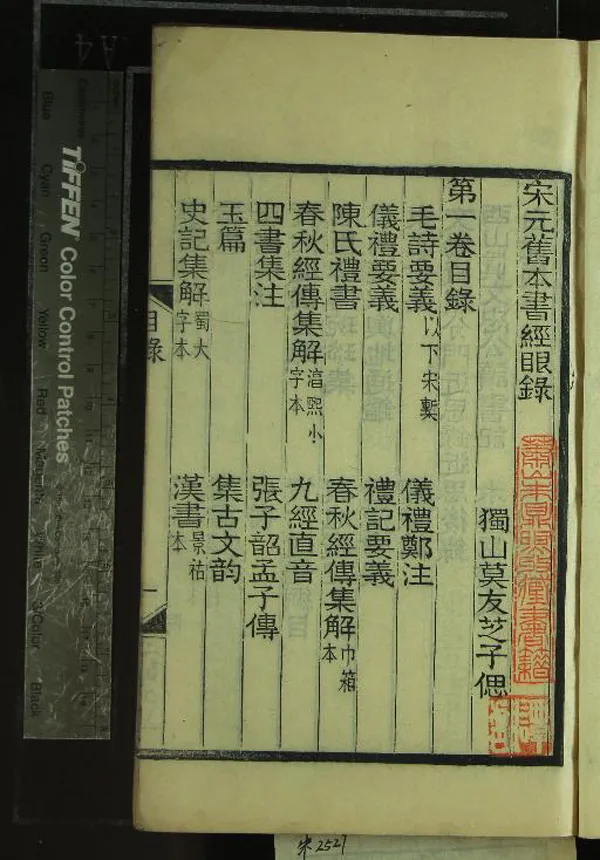 宋元舊本書經眼錄
獨山莫友芝子偲
第一卷目錄
毛詩要義以下宋槧
儀禮鄭注
儀禮要義
禮記要義
陳氏禮書
春秋經傳集解巾箱本
春秋經傳集解淳熙小字本
九經直音
四書集注
張子韶孟子傳
玉篇
集古文韵
史記集解蜀大字本
漢書景祐本
目錄
一
TIFFEN Color Control Patches
Blue
Cyan
Green
Yellow
Red
Magenta
White
3/Color
Black
A4
宋2527